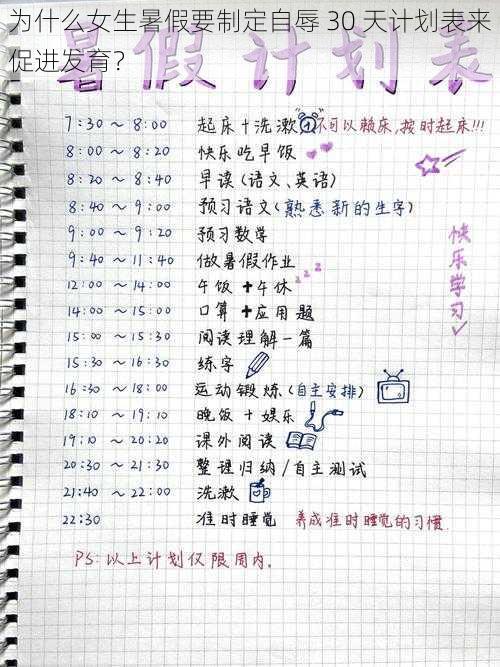 为什么女生暑假要制定自辱 30 天计划表来
促进发育？
暑假计划表
7:30 ~ 8:00 起床+洗漱 不可以赖床,按时起床!!!
8:00 ~ 8:20 快乐吃早饭
8:20 ~ 8:40 早读(语文、英语)
8:40 ~ 9:00 预习语文(熟悉新的生字)
9:00 ~ 9:20 预习数学
9:40 ~ 11:40 做暑假作业
12:00 ~ 14:00 午饭+午休 zzz
14:00 ~ 15:00 口算+应用题
15:00 ~ 15:30 阅读理解一篇
15:30 ~ 16:30 练字
16:30 ~ 18:00 运动锻炼(自主安排)
18:10 ~ 19:10 晚饭+娱乐
19:10 ~ 20:20 课外阅读
20:30 ~ 21:30 整理归纳/自主测试
21:40 ~ 22:00 洗漱
22:30 准时睡觉 养成准时睡觉的习惯.
PS:以上计划仅限周内。
快乐学习